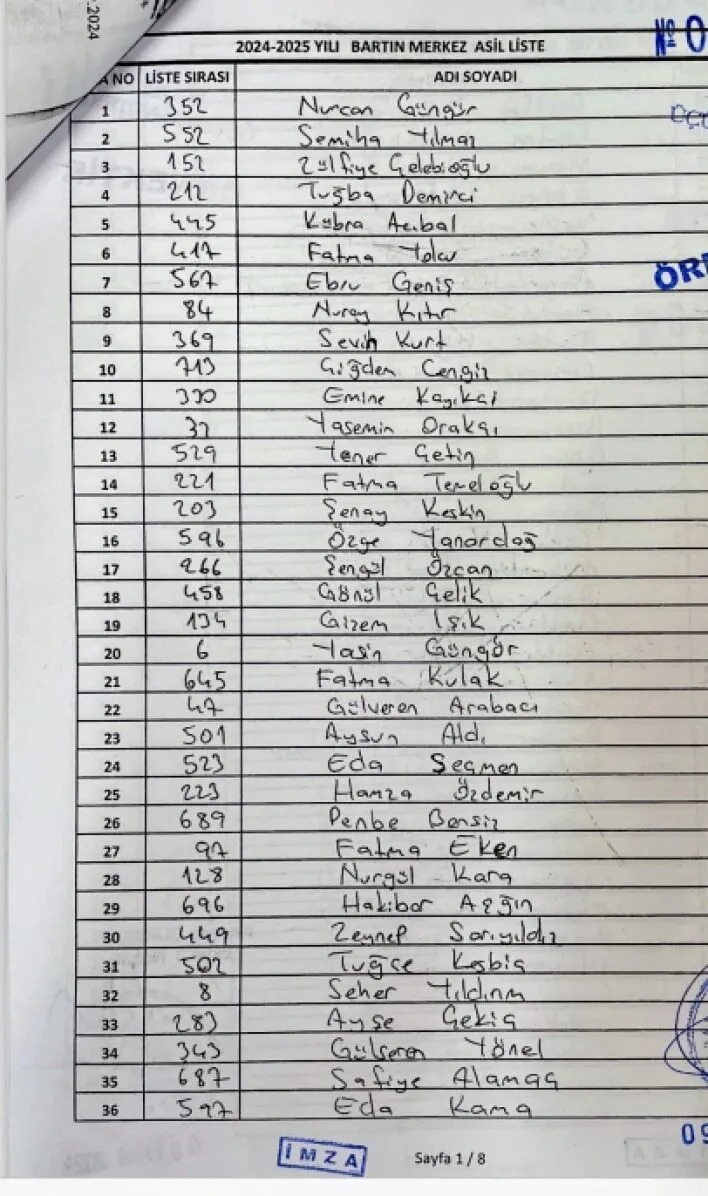 .2024
2024-2025 YILI BARTIN MERKEZ ASİL LİSTE
Nº 0
NO LİSTE SIRASI ADI SOYADI
1 352 Nurcan Güngür
2 552 Semiha Yılmaz
3 152 Zülfiye Çelebioğlu
4 212 Tuğba Demirci
5 445 Kübra Acıbal
6 417 Fatma Yolcu
7 567 Ebru Geniş
ÖR
8 84 Nuray Kıtır
9 369 Sevih Kurt
10 713 Çiğdem Cengiz
11 330 Emine Kayıkçı
12 37 Yasemin Orakçı
13 529 Yener Çetin
14 221 Fatma Temeloğlu
15 203 Şenay Keskin
16 596 Özge Yanardağ
17 266 Şengül Özcan
18 458 Gönül Çelik
19 134 Gizem Işık
20 6 Yasin Güngör
21 645 Fatma Kulak
22 47 Gülveren Arabacı
23 501 Aysun Aldı
24 523 Eda Seçmen
25 223 Hamza Özdemir
26 689 Penbe Bensiz
27 97 Fatma Eken
28 128 Nurgül Kara
29 696 Hakibar Azğın
30 449 Zeynep Sarıyıldız
31 502 Tuğçe Keşbiç
32 8 Seher Yıldırım
33 283 Ayşe Çekiç
34 343 Gülseren Yönel
35 687 Safiye Alamaç
36 597 Eda Kama
09
İMZA Sayfa 1 / 8